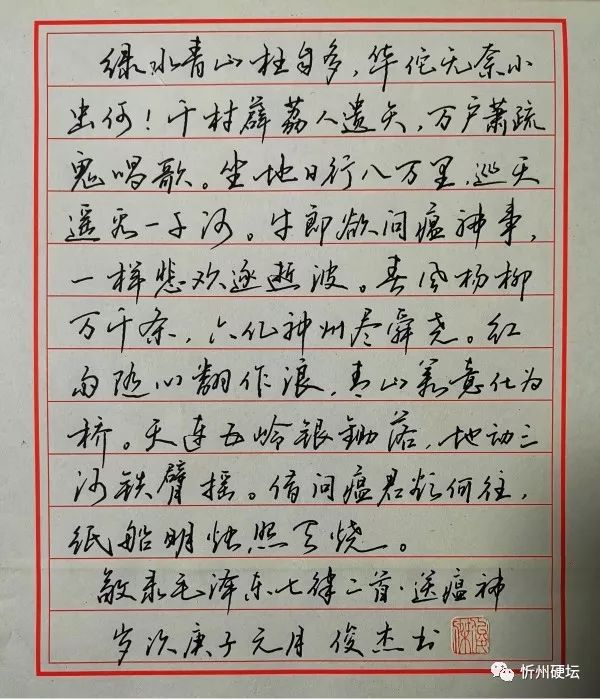 绿水青山枉自多，华佗无奈小
虫何！千村薜荔人遗矢，万户萧疏
鬼唱歌。坐地日行八万里，巡天
遥看一千河。牛郎欲问瘟神事，
一样悲欢逐逝波。春风杨柳
万千条，六亿神州尽舜尧。红
雨随心翻作浪，青山着意化为
桥。天连五岭银锄落，地动三
河铁臂摇。借问瘟君欲何往，
纸船明烛照天烧。
敬录毛泽东七律二首·送瘟神
岁次庚子元月 俊杰书
忻州硬坛